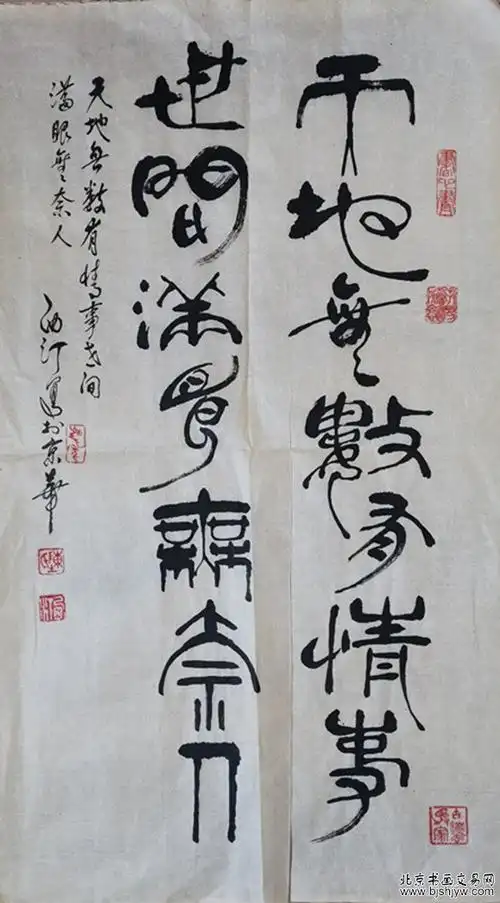 天地無數有情事
世間滿眼無奈人
天地無数有情事世间
滿眼無奈人
西汀写於京華
北京书画交易网
www.bjshjyw.com